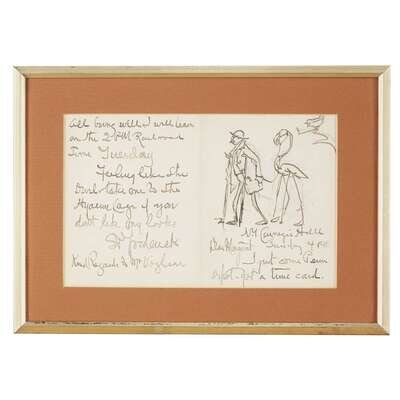 All being well I will leave
on the 2 PM Railroad
Time Tuesday
Feeling like the
Devil take one to the
Hyaene Cage if you
don't like my looks
Kind Regards to Mr
NY Carnegie Hall
Sunday 4 PM
I just come from
a time card.